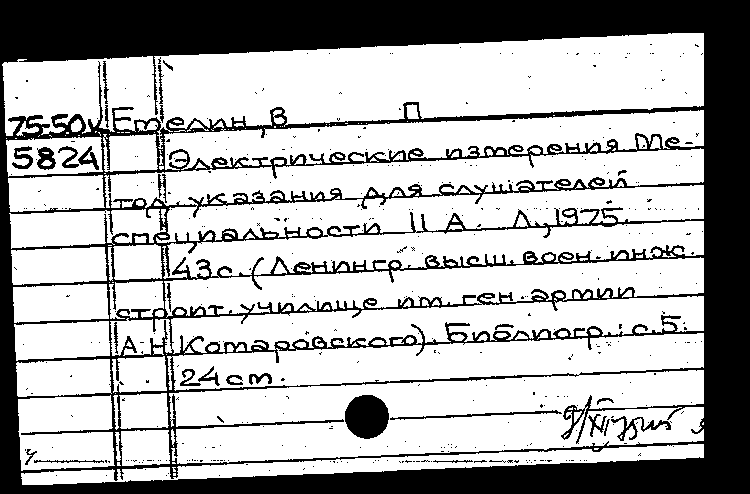 75-50к Емелин, В П
5824 Электрические измерения Ме-
тод. указания для слушателей
специальности II А. Л., 1975.
43с. (Ленингр. высш. воен. инж.
строит. училище им. ген. армии
А.Н.Комаровского). Библиогр.: с.5.
24 см.